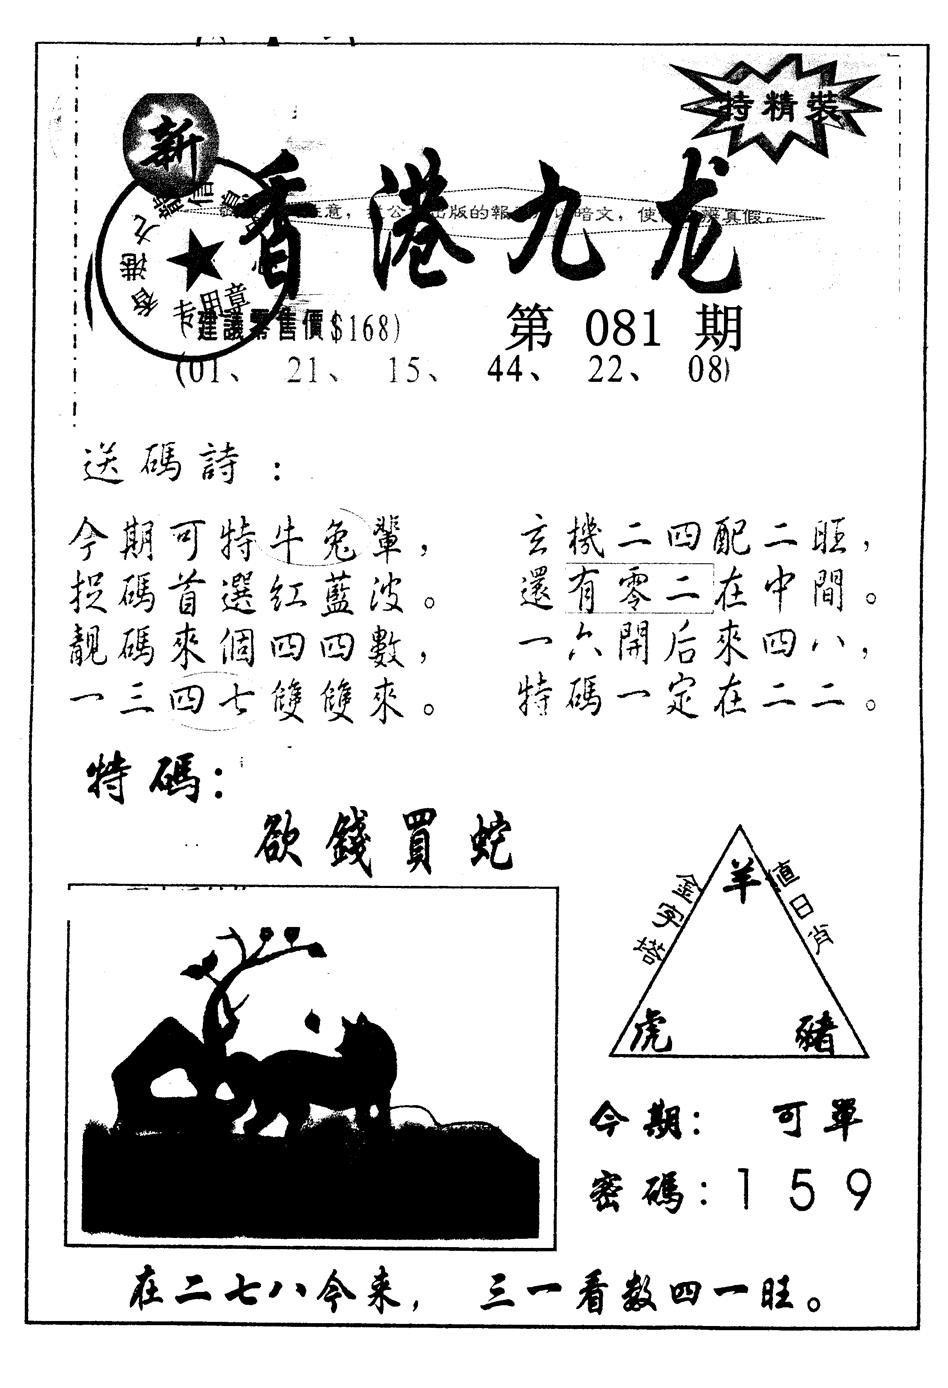 特精裝
新
香港九龙
香港九龍信
专用章
意，
公
出版的報
暗文，使
真假。
(建議零售價$168)
第 081 期
(01、 21、 15、 44、 22、 08)
送碼詩：
今期可特牛兔輩，
捉碼首選紅藍波。
靚碼來個四四數，
一三四七雙雙來。
玄機二四配二旺，
還有零二在中間。
一六開后來四八，
特碼一定在二二。
特碼：
欲錢買蛇
金字塔
羊
值日肖
虎
豬
今期： 可單
密碼：1 5 9
在二七八今来， 三一看数四一旺。